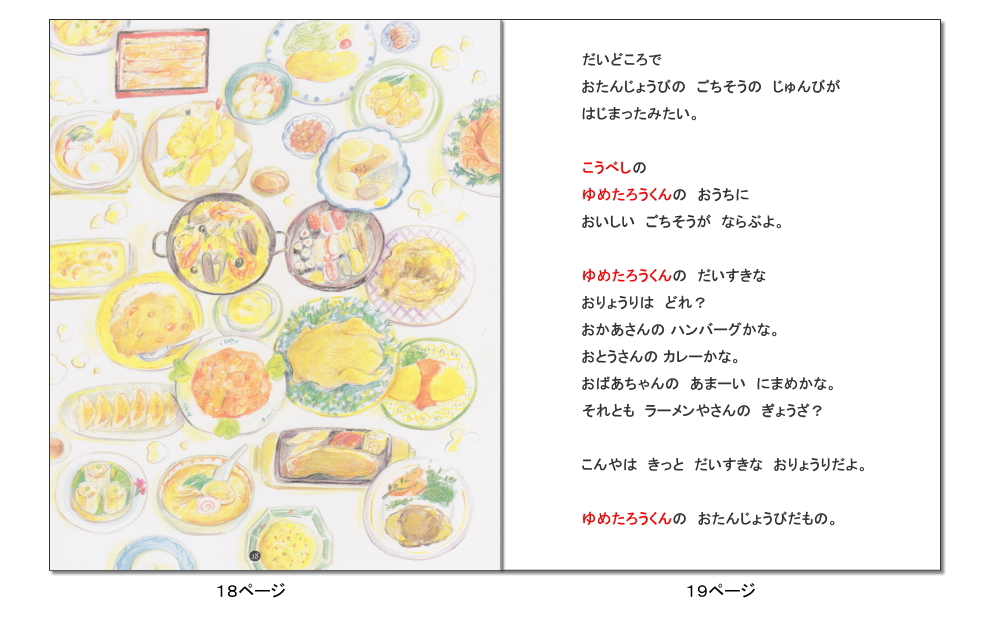 だいどころで
おたんじょうびの ごちそうの じゅんびが
はじまったみたい。
こうべしの
ゆめたろうくんの おうちに
おいしい ごちそうが ならぶよ。
ゆめたろうくんの だいすきな
おりょうりは どれ？
おかあさんの ハンバーグかな。
おとうさんの カレーかな。
おばあちゃんの あまーい にまめかな。
それとも ラーメンやさんの ぎょうざ？
こんやは きっと だいすきな おりょうりだよ。
ゆめたろうくんの おたんじょうびだもの。
18
１８ページ
１９ページ